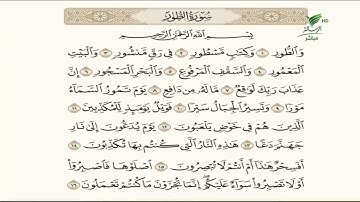 سُورَةُ الطُّورِ
بِسْمِ اللَّهِ الرَّحْمَٰنِ الرَّحِيمِ
وَالطُّورِ ١ وَكِتَابٍ مَّسْطُورٍ ٢ فِي رَقٍّ مَّنشُورٍ ٣ وَالْبَيْتِ
الْمَعْمُورِ ٤ وَالسَّقْفِ الْمَرْفُوعِ ٥ وَالْبَحْرِ الْمَسْجُورِ ٦ إِنَّ
عَذَابَ رَبِّكَ لَوَاقِعٌ ٧ مَّا لَهُ مِن دَافِعٍ ٨ يَوْمَ تَمُورُ السَّمَاءُ
مَوْرًا ٩ وَتَسِيرُ الْجِبَالُ سَيْرًا ١٠ فَوَيْلٌ يَوْمَئِذٍ لِّلْمُكَذِّبِينَ ١١
الَّذِينَ هُمْ فِي خَوْضٍ يَلْعَبُونَ ١٢ يَوْمَ يُدَعُّونَ إِلَىٰ نَارِ
جَهَنَّمَ دَعًّا ١٣ هَٰذِهِ النَّارُ الَّتِي كُنتُم بِهَا تُكَذِّبُونَ ١٤
أَفَسِحْرٌ هَٰذَا أَمْ أَنتُمْ لَا تُبْصِرُونَ ١٥ اصْلَوْهَا فَاصْبِرُوا
أَوْ لَا تَصْبِرُوا سَوَاءٌ عَلَيْكُمْ إِنَّمَا تُجْزَوْنَ مَا كُنتُمْ تَعْمَلُونَ ١٦
HD
مباشر